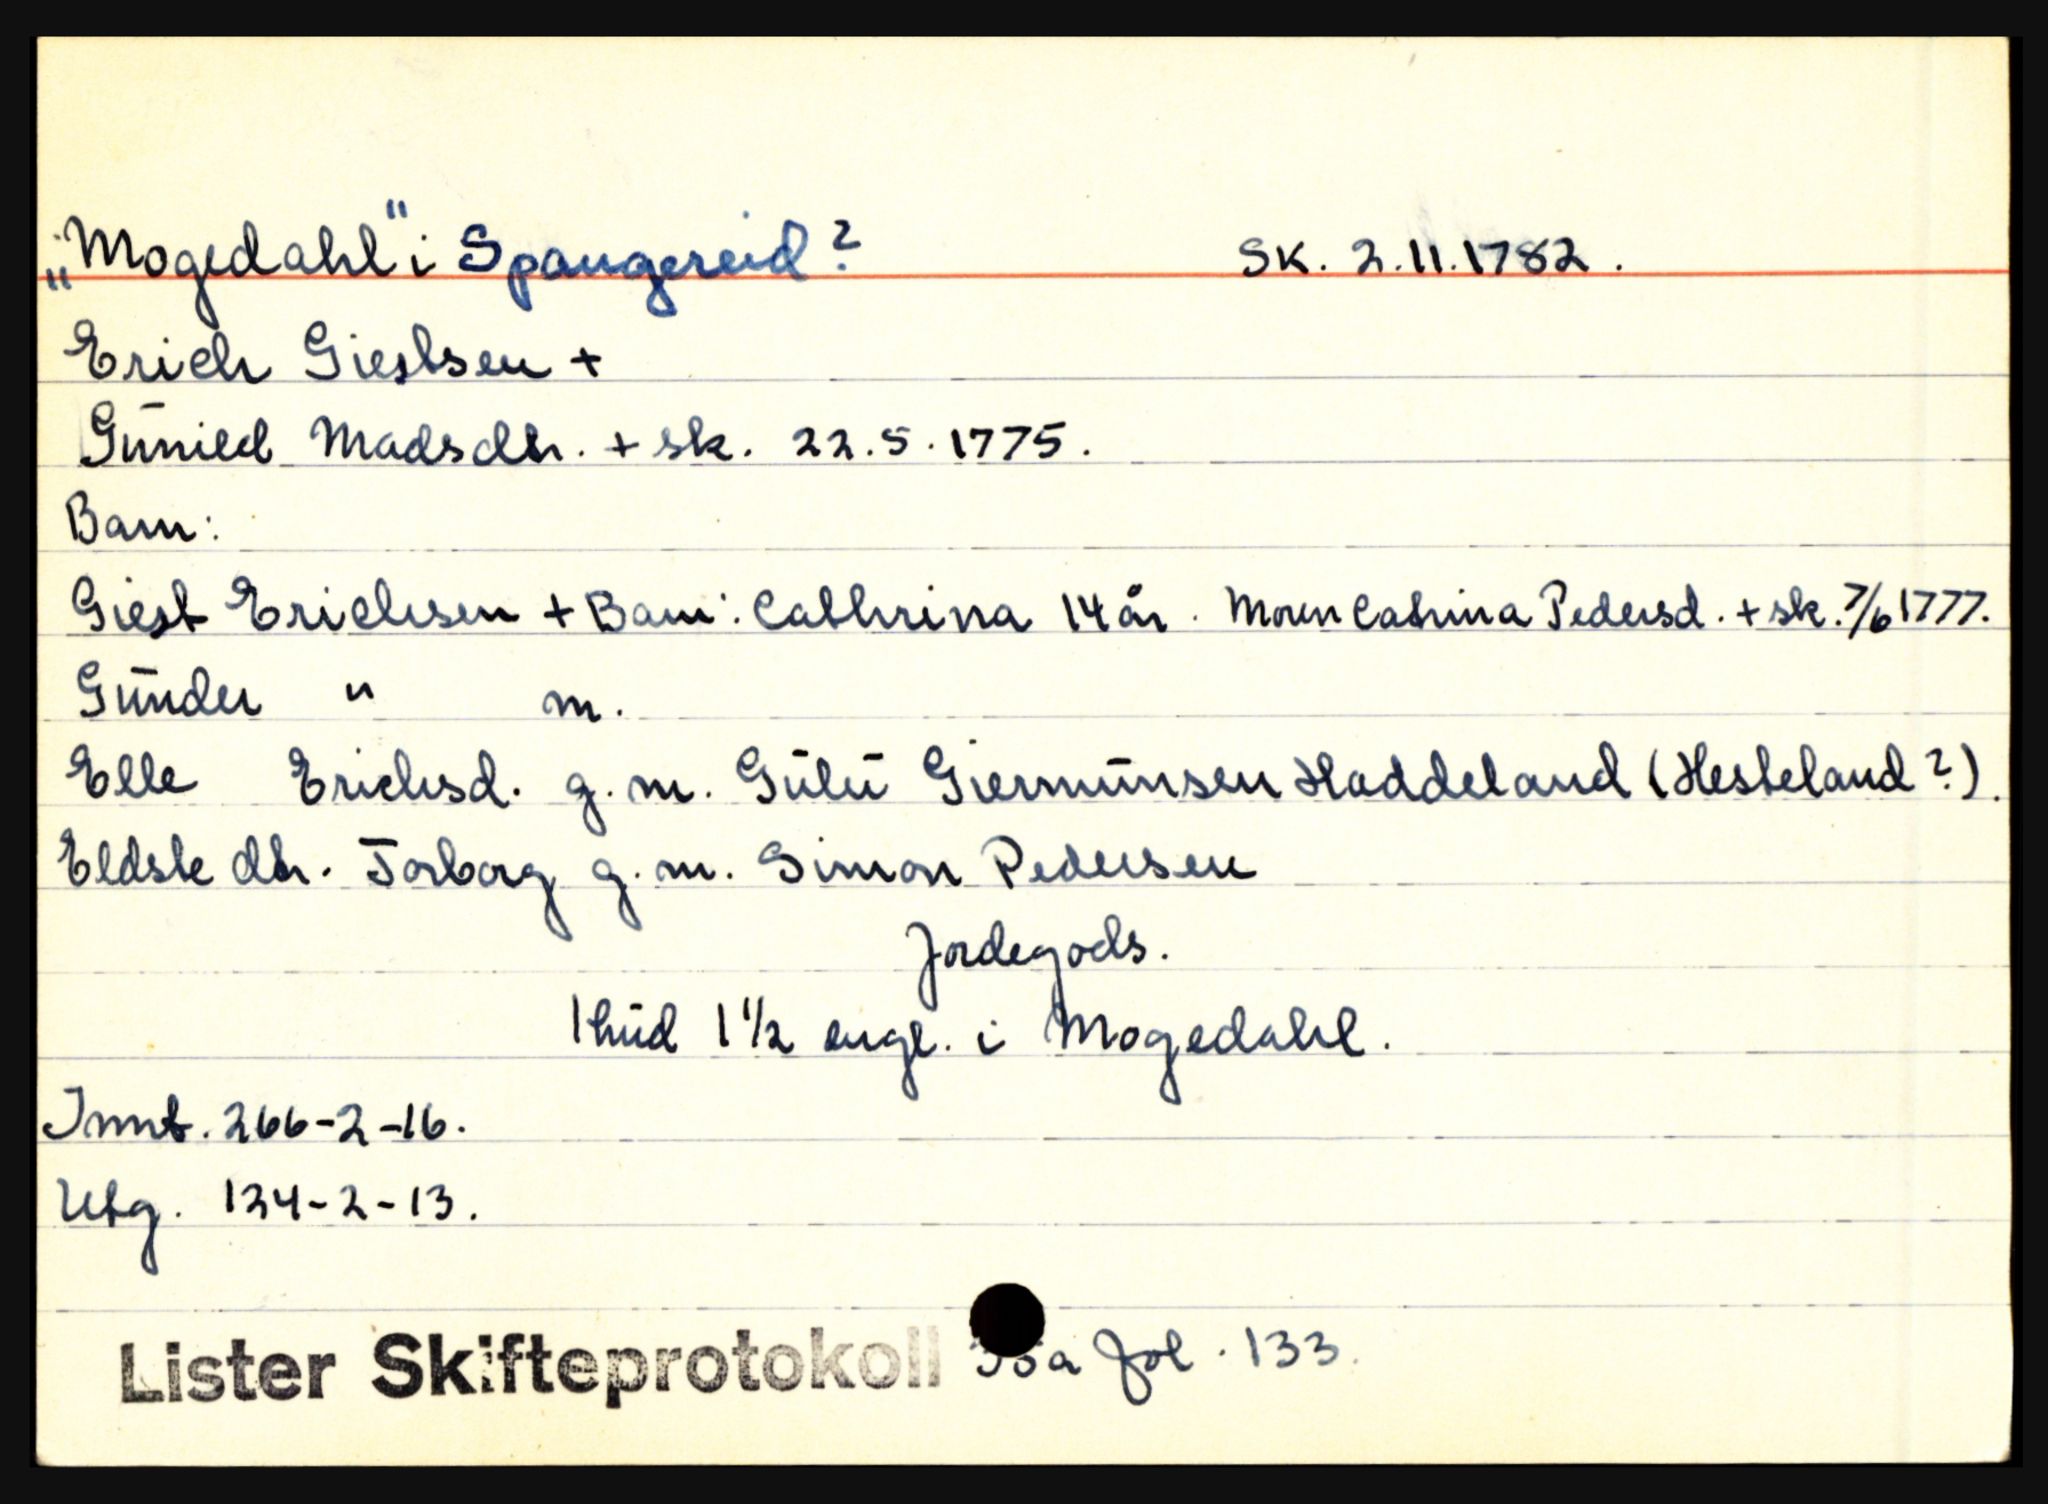 „Mogedahl" i Spangereid? SK. 2.11.1782.
Erich Giestsen +
Gūnild Madsdtr. + sk. 22.5.1775.
Barn:
Giest Erichsen + Barn: Cathrina 14 år. Moren Catrina Pedersd. + sk. 7/6 1777.
Gūnder " m.
Elle Erichsd. g. m. Gūlū Giermūnsen Haddeland (Hesteland?).
Eldste dtr. Torborg g. m. Simon Pedersen
Jordegods.
1 hūd 1 1/2 engl. i Mogedahl.
Innt. 266-2-16.
Utg. 134-2-13.
Lister Skifteprotokoll fol. 133.